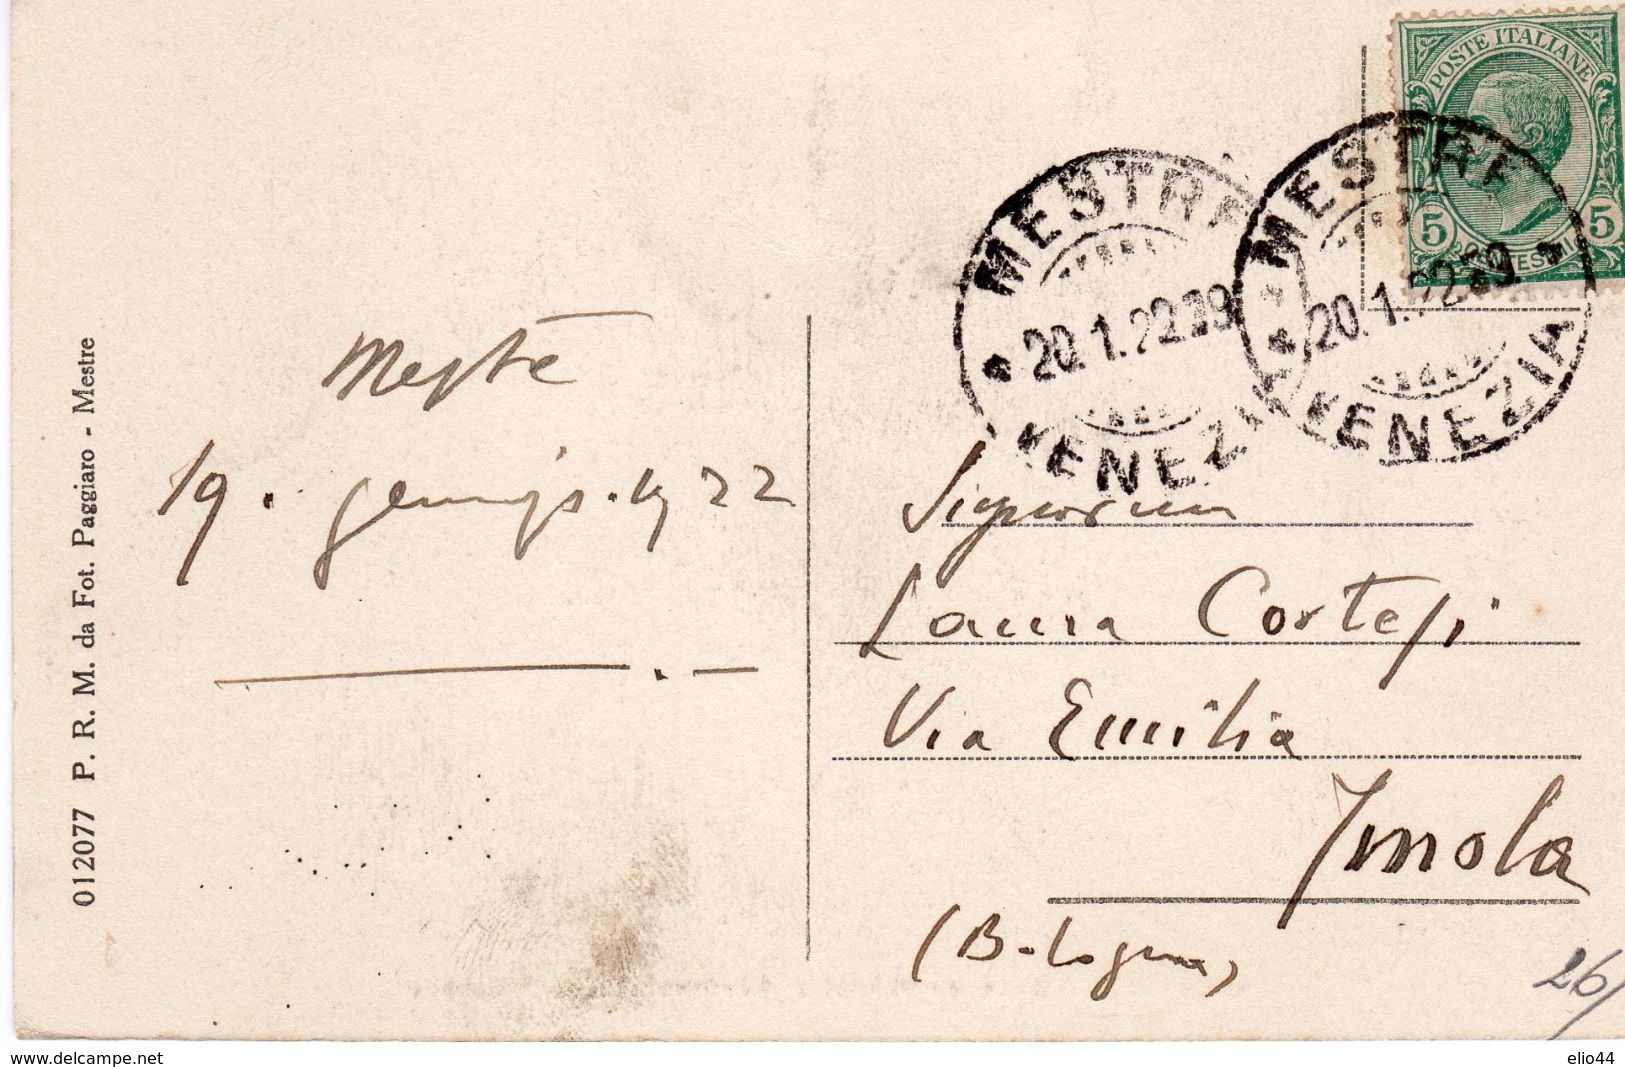 POSTE ITALIANE
5 CENTESIMI 5
MESTRE
20.1.22.19
VENEZIA
MESTRE
20.1.22.19
VENEZIA
Mestre
19. 1922
Signorina
Laura Cortesi
Via Emilia
Imola
(Bologna)
26/
012077 P. R. M. da Fot. Paggiaro - Mestre
delcampe.net
elio44